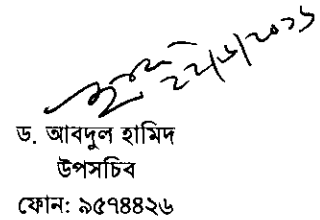 ২২/৬/২০২১
ড. আবদুল হামিদ
উপসচিব
ফোন: ৯৫৭৪৪২৬